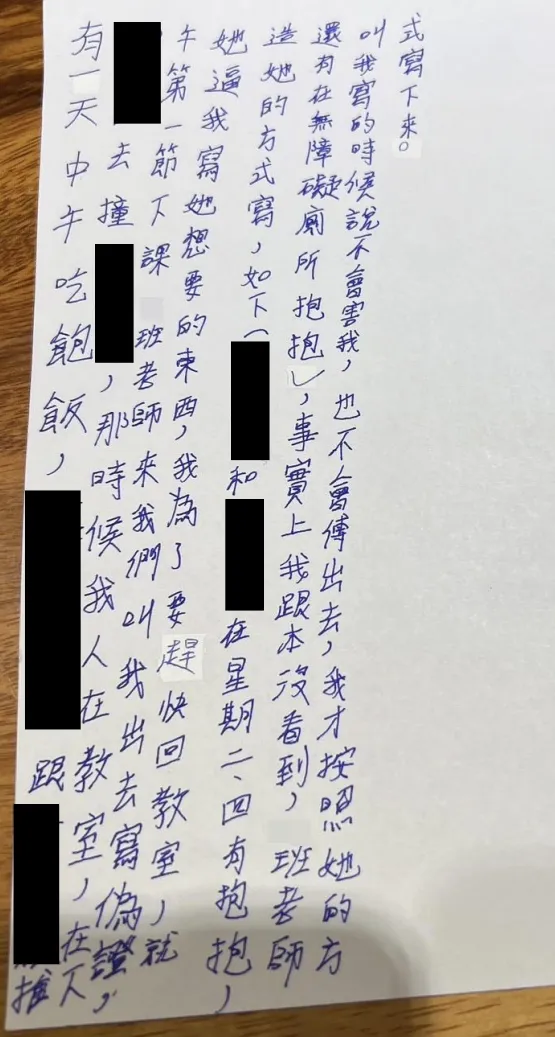 有一天中午吃飽飯，跟推
去撞，那時候我人在教室，在下
午第一節下課 班老師來我們叫我出去寫偽證，
她逼我寫她想要的東西，我為了要趕快回教室，就
造她的方式寫，如下（和在星期二、四有抱抱，
還有在無障礙廁所抱抱），事實上我跟本沒看到， 班老師
叫我寫的時候說不會害我，也不會傳出去，我才按照她的方
式寫下來。